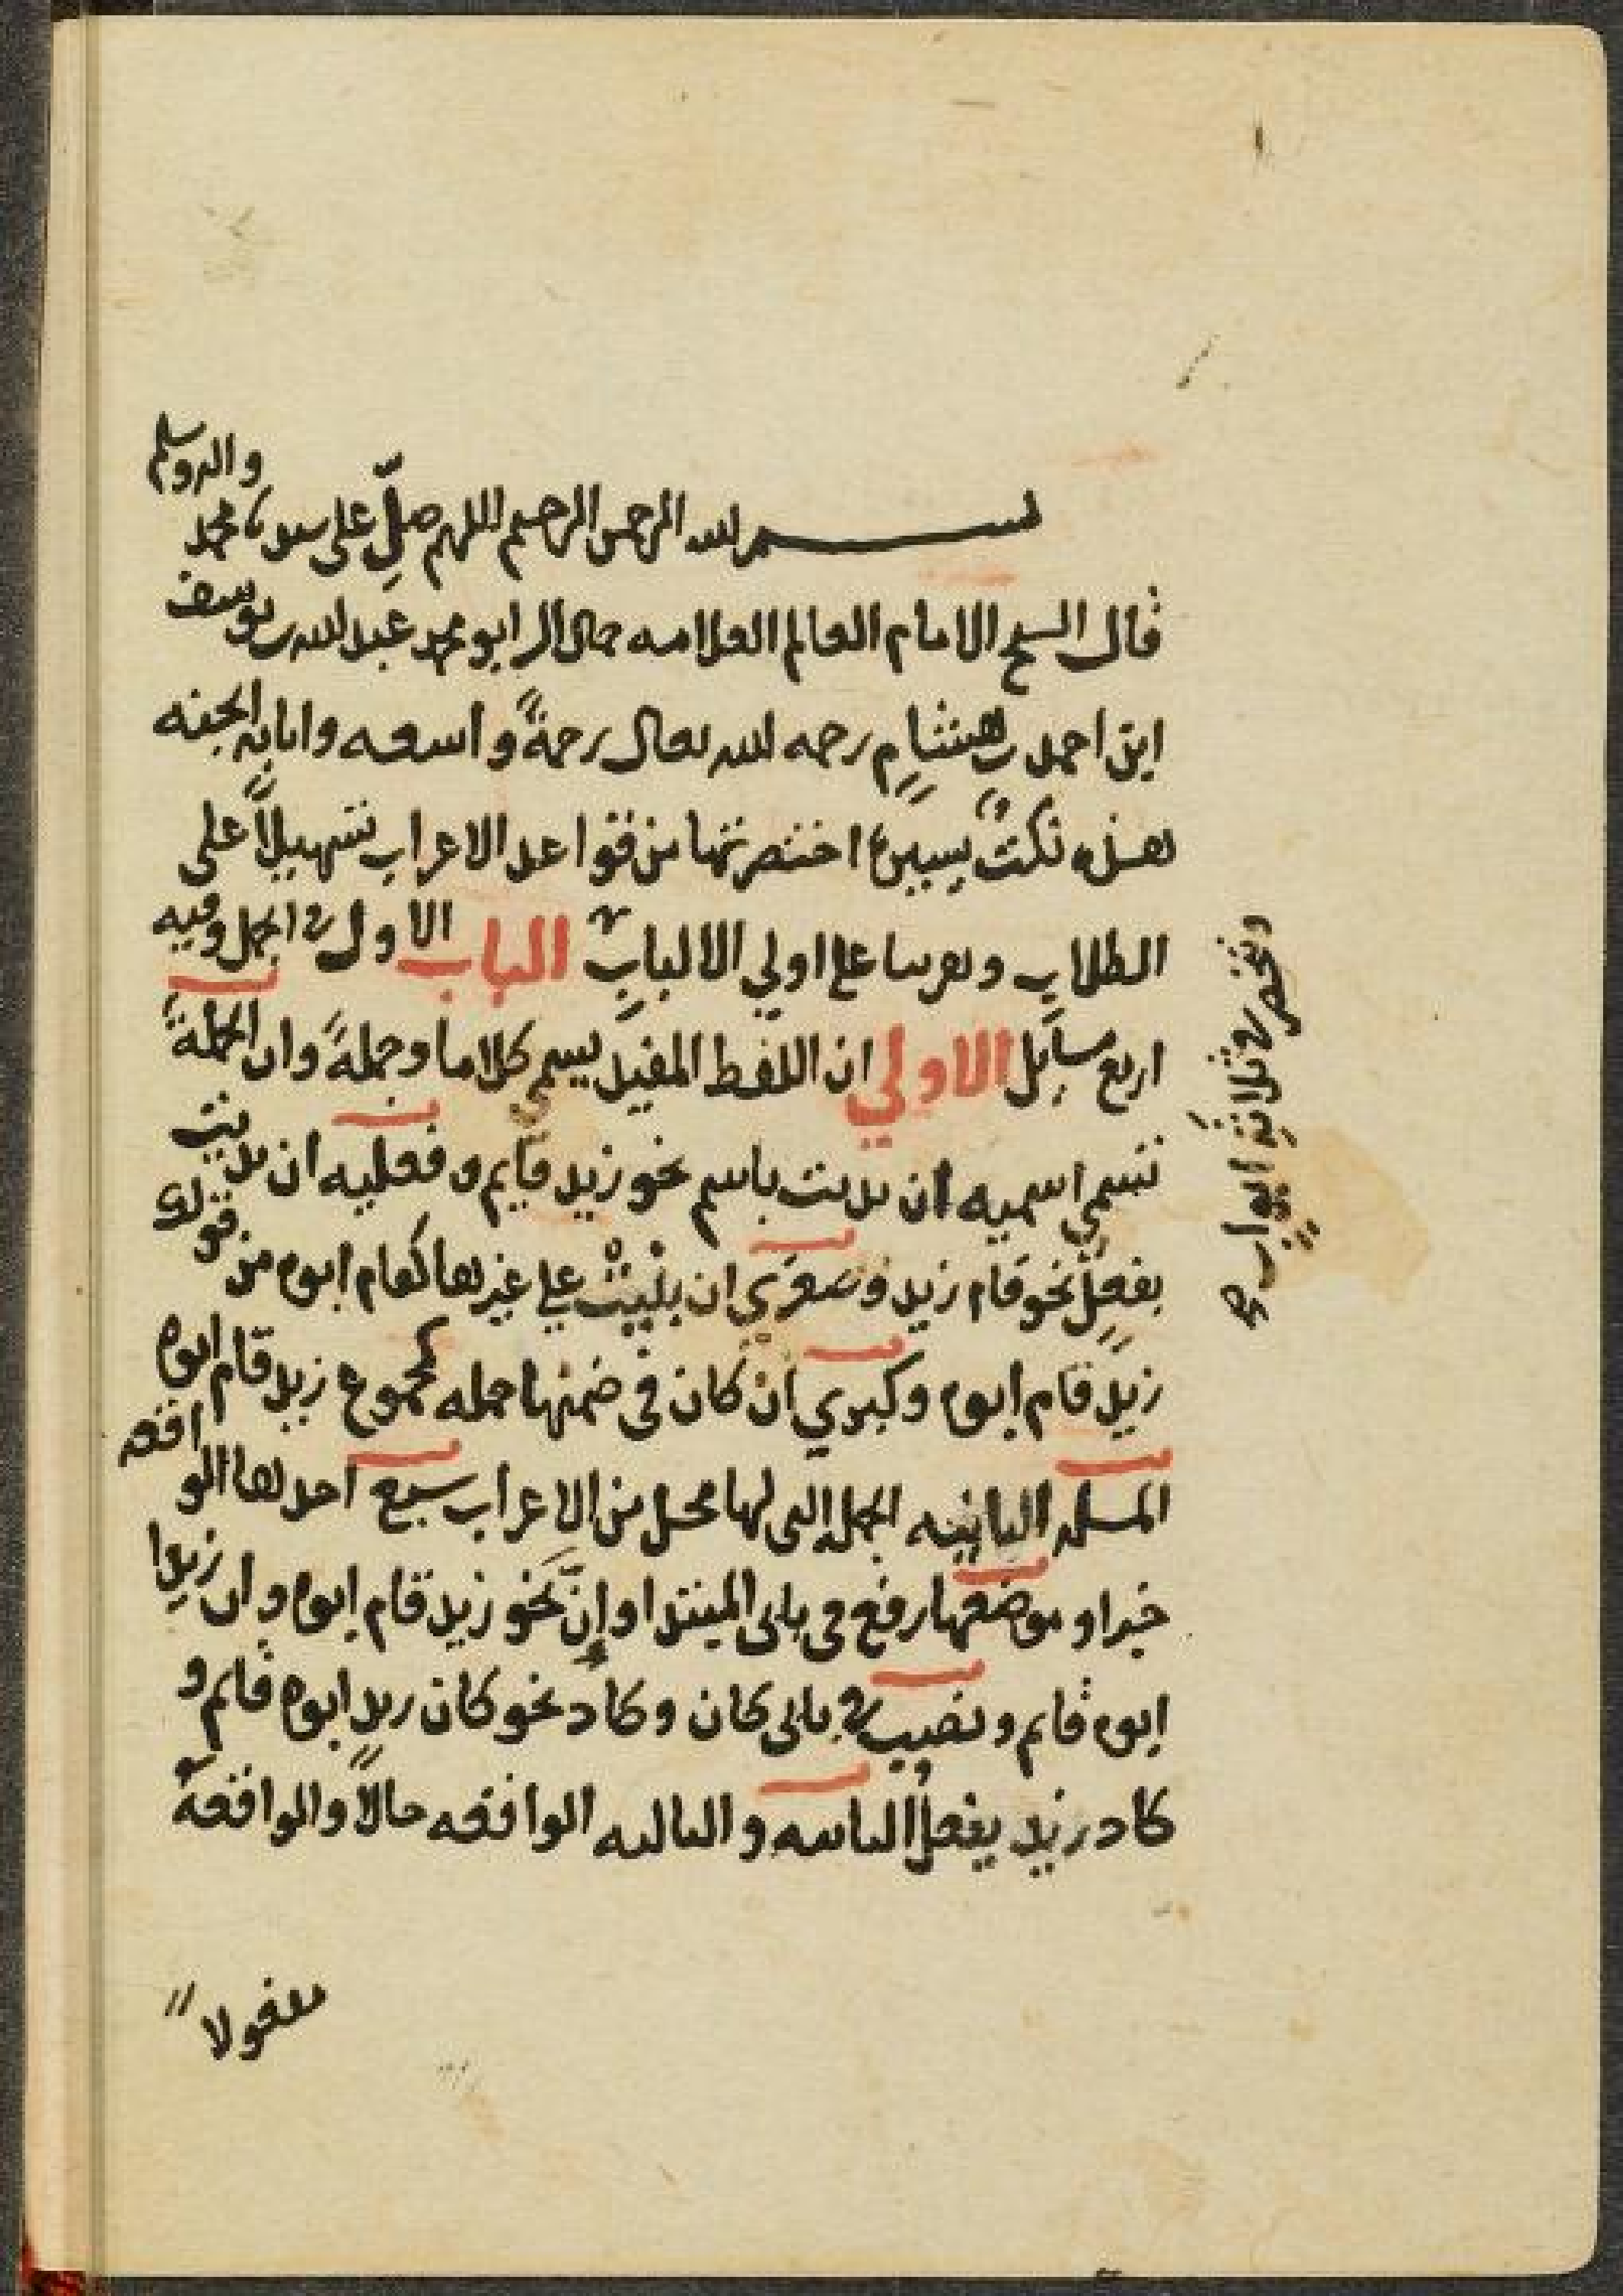 بسم الله الرحمن الرحيم اللهم صلِّ على سيدنا محمد واله وسلم
قال الشيخ الامام العالم العلامه جمال الدين ابو محمد عبد الله بن يوسف
ابن احمد بن هشامٍ رحمه الله تعالى رحمةً واسعه واثابه الجنه
هذه نكتٌ يسيرة اختصرتها من قواعد الاعراب تسهيلاً على
الطلاب وتقريبا على اولي الالبابِ الباب الاول في الجمل وفيه
اربع مسايل الاولي ان اللفظ المفيد يسمي كلاما وجملةً وان الجملة
تسمي اسميه ان بديت باسم نحو زيد قايم وفعليه ان بديت
بفعلٍ نحو قام زيد وصغرَي ان بُنِيَتْ علي غيرها كقام ابوه من قولك
زيدٌ قام ابوه وكبري ان كان في ضمنها جمله كمجموع زيد قام ابوه
المسله الثانيه الجمله التي لها محل من الاعراب سبع احدها الواقعه
خبرا وموضعها رفع في بابي المبتدا وإنَّ نحو زيد قام ابوه وان زيدا
ابوه قايم ونصب في بابي كان وكاد نحو كان زيد ابوه قايم و
كاد زيد يفعلُ الثانيه والثالثه الواقعه حالاً والواقعة
مفعولا
وتنحصر في ثلاثةِ ابوابٍ